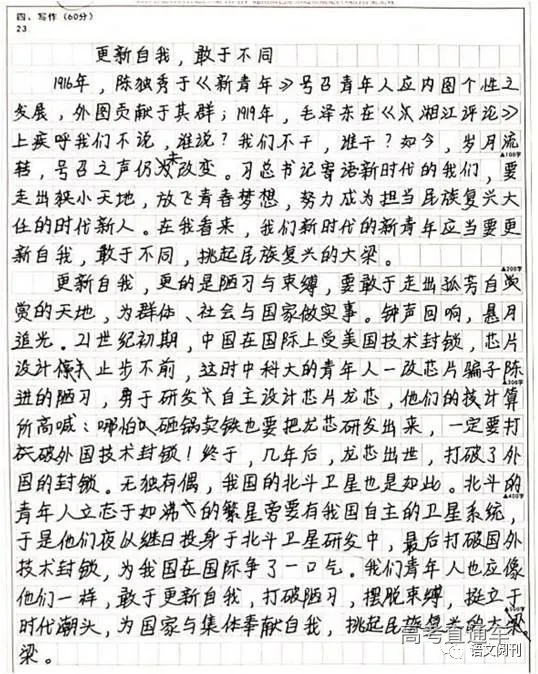 四、写作（60分）
23.
更新自我，敢于不同
1916年，陈独秀于《新青年》号召青年人应内图个性之
发展，外图贡献于其群；1919年，毛泽东在《湘江评论》
上疾呼我们不说，谁说？我们不干，谁干？如今，岁月流
转，号召之声仍未改变。习总书记寄语新时代的我们，要
▲100字
走出狭小天地，放飞青春梦想，努力成为担当民族复兴大
任的时代新人。在我看来，我们新时代的新青年应当要更
新自我，敢于不同，挑起民族复兴的大梁。
▲200字
更新自我，更的是陋习与束缚，要敢于走出孤芳自赏
赏的天地，为群体、社会与国家做实事。钟声回响，悬月
追光。21世纪初期，中国在国际上受美国技术封锁，芯片
设计止步不前，这时中科大的青年人一改芯片骗子陈
▲300字
进的陋习，勇于研发自主设计芯片龙芯，他们的技计算
所高喊：哪怕砸锅卖铁也要把龙芯研发出来，一定要打
破外国技术封锁！终于，几年后，龙芯出世，打破了外
国的封锁。无独有偶，我国的北斗卫星也是如此。北斗的
▲400字
青年人立志于如沸的繁星旁要有我国自主的卫星系统，
于是他们夜以继日投身于北斗卫星研发中，最后打破国外
技术封锁，为我国在国际争了一口气。我们青年人也应像
他们一样，敢于更新自我，打破陋习，摆脱束缚，挺立于
时代潮头，为国家与集体奉献自我，挑起民族复兴的大梁
梁。
高考直通车
语文阅刊